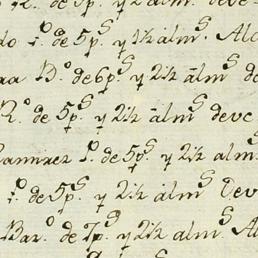 de 5 p.s y 2 alm.s deve
do p.o de 5 p.s y 1½ alm.s Alc
xa B.o de 6 p.s y 2½ alm.s de
R.o de 5 p.s y 2½ alm.s deve
Ramirez P.o de 5 p.s y 2½ alm.s
p.o de 5 p.s y 2½ alm.s Deve
Bar.o de 7 p.s y 2½ alm.s Al